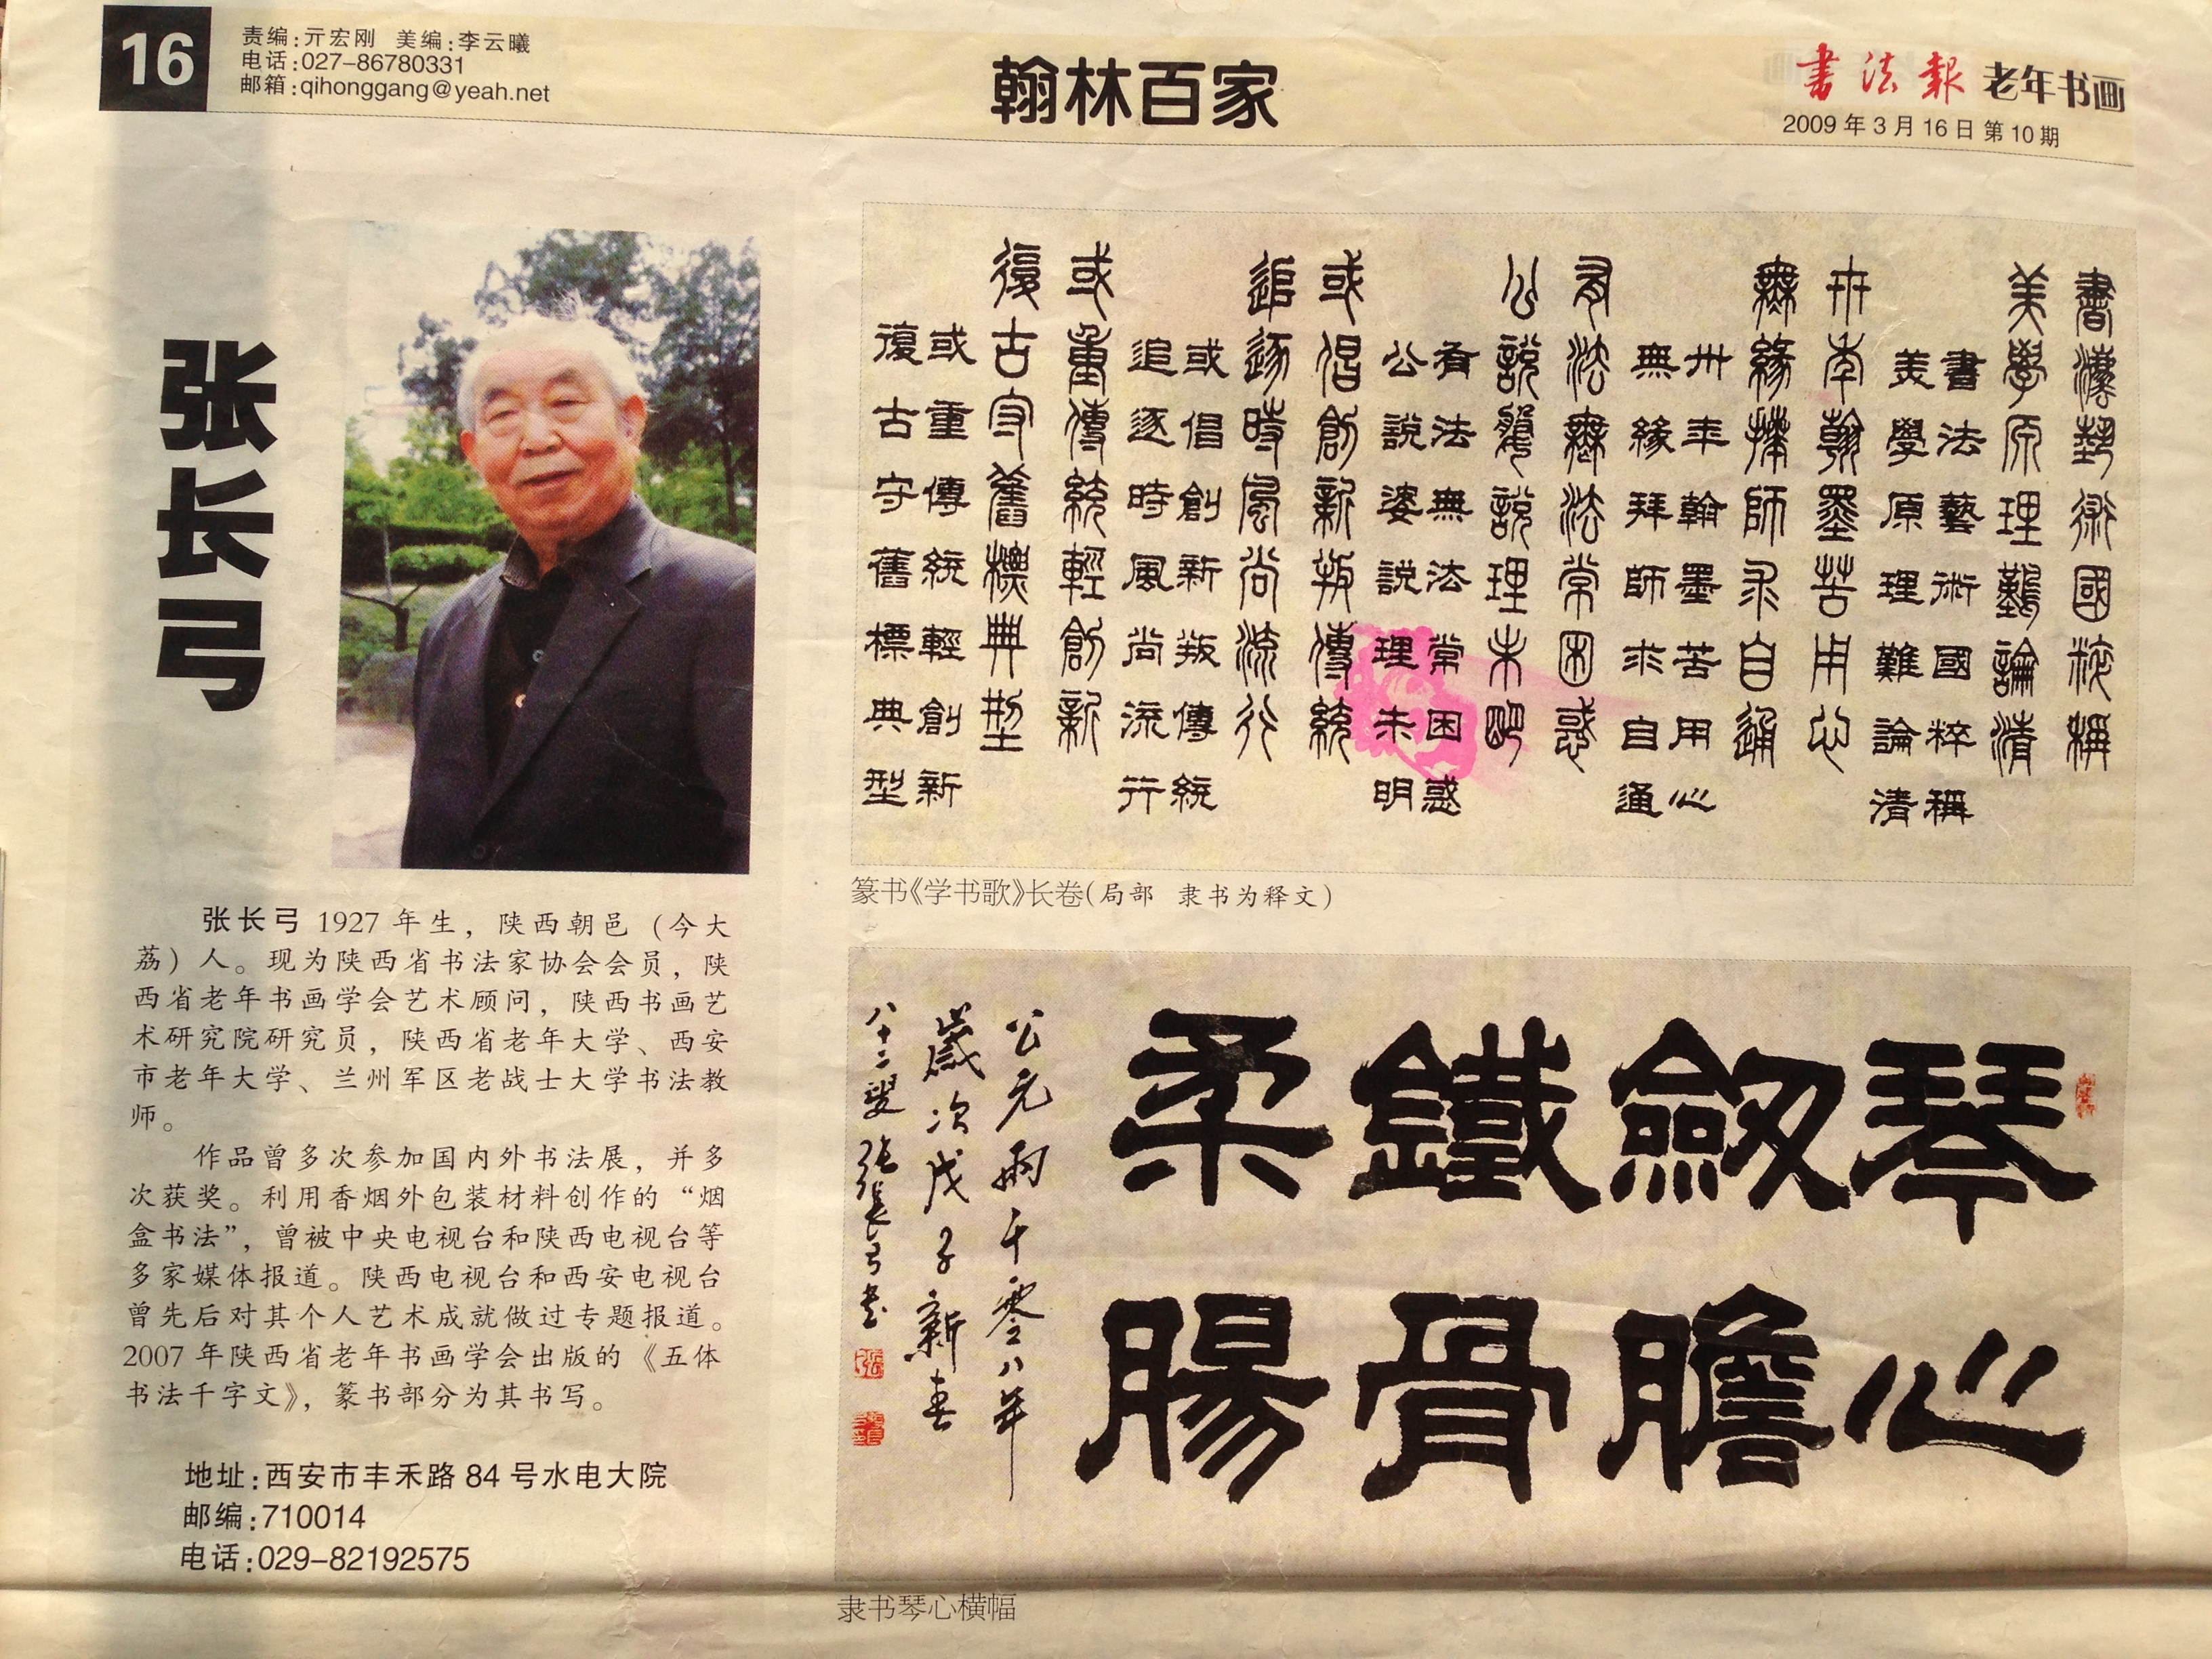 16
责编:亓宏刚 美编:李云曦
电话:027-86780331
邮箱:qihonggang@yeah.net
翰林百家
書法報 老年书画
2009年3月16日 第10期
张长弓
張长弓 1927 年生，陕西朝邑（今大
荔）人。现为陕西省书法家协会会员，陕
西省老年书画学会艺术顾问，陕西书画艺
术研究院研究员，陕西省老年大学、西安
市老年大学、兰州军区老战士大学书法教
师。
作品曾多次参加国内外书法展，并多
次获奖。利用香烟外包装材料创作的“烟
盒书法”，曾被中央电视台和陕西电视台等
多家媒体报道。陕西电视台和西安电视台
曾先后对其个人艺术成就做过专题报道。
2007 年陕西省老年书画学会出版的《五体
书法千字文》，篆书部分为其书写。
地址:西安市丰禾路84号水电大院
邮编:710014
电话:029-82192575
書法藝術國粹稱
美學原理難論清
書法藝術國粹稱
美學原理難論清
卅年翰墨苦用心
無緣拜師求自通
卅年翰墨苦用心
無緣拜師求自通
有法無法常困惑
公說婆說理未明
有法無法常困惑
公說婆說理未明
或倡創新叛傳統
追逐時風尚流行
或倡創新叛傳統
追逐時風尚流行
或重傳統輕創新
復古守舊標典型
或重傳統輕創新
復古守舊標典型
篆书《学书歌》长卷(局部 隶书为释文)
琴心
劒膽
鐵骨
柔腸
公元兩千零八年
歲次戊子新春
八十二叟張長弓書
隶书琴心横幅